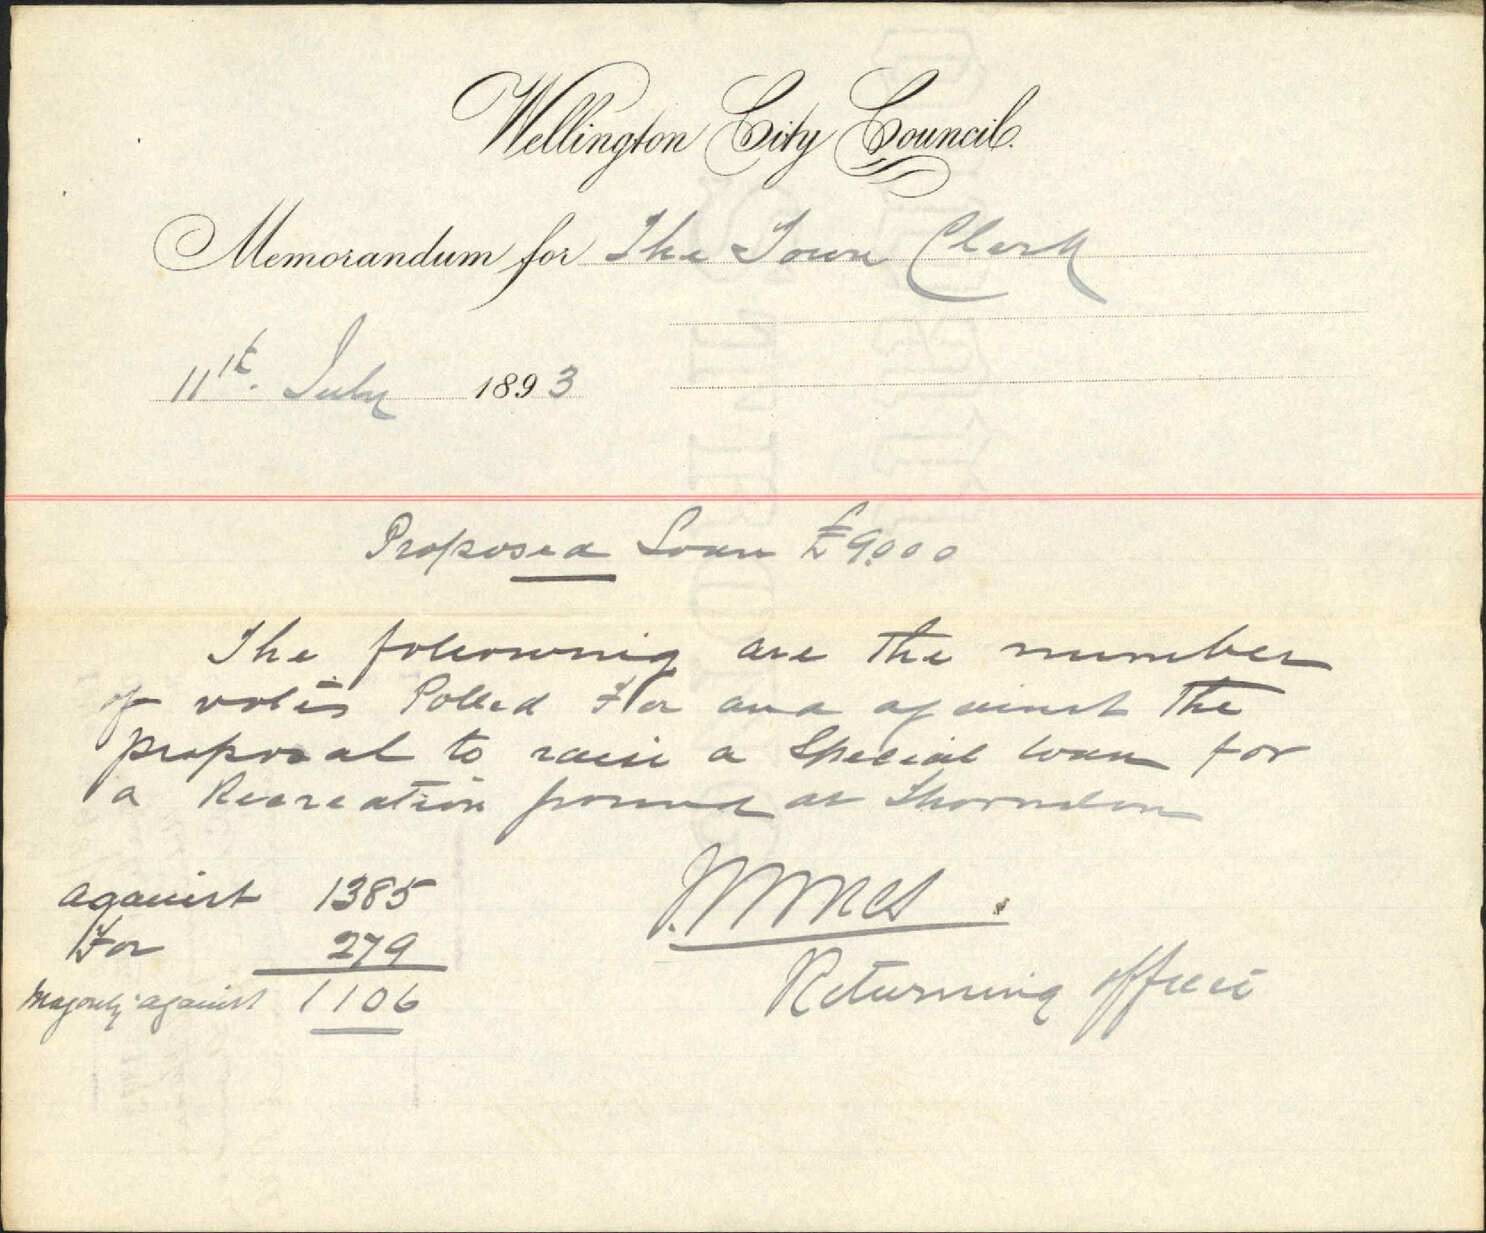 Wellington City Council.
Memorandum for The Town Clerk
11th. July 1893
Proposed Loan £9,000
The following are the number
of votes Polled For and against The
proposal to raise a Special loan for
a Recreation ground at Thorndon
against 1385
For 279
Majority against 1106
Returning Officer